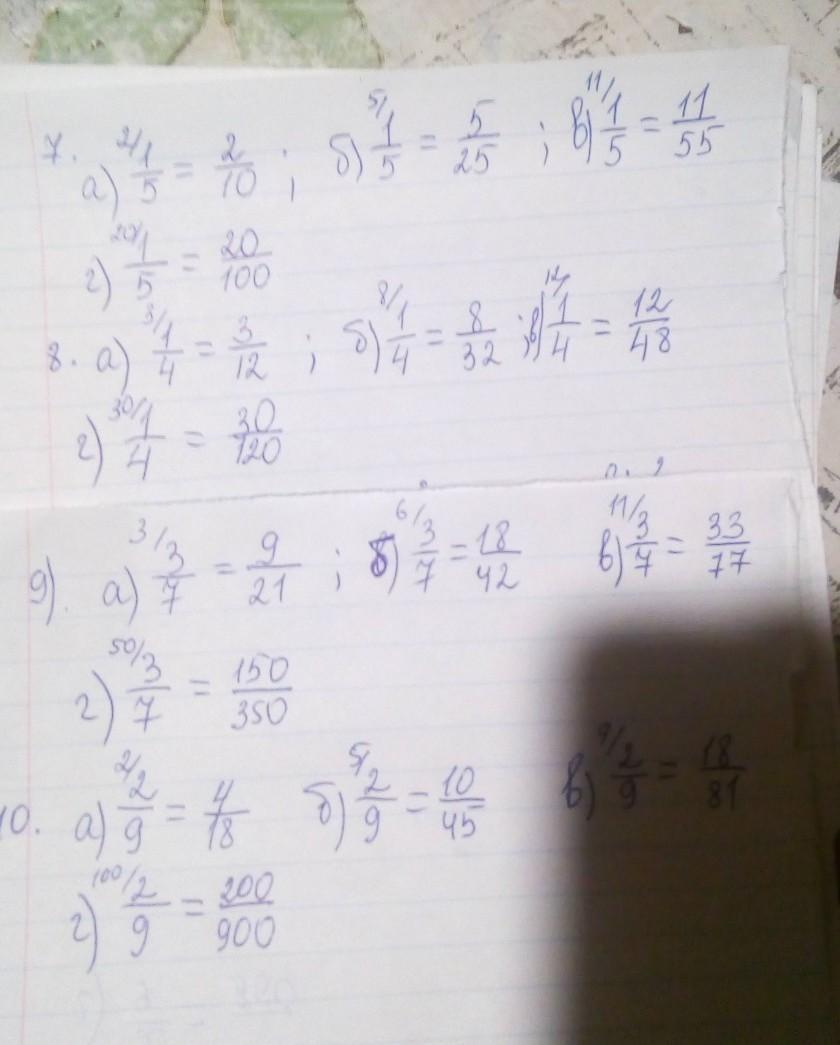 7. а) ²/1/5 = 2/10 ; б) ⁵/1/5 = 5/25 ; в) ¹¹/1/5 = 11/55
г) ²⁰/1/5 = 20/100
8. а) ³/1/4 = 3/12 ; б) ⁸/1/4 = 8/32 ; в) ¹²/1/4 = 12/48
г) ³⁰/1/4 = 30/120
9). а) ³/3/7 = 9/21 ; б) ⁶/3/7 = 18/42 в) ¹¹/3/7 = 33/77
г) ⁵⁰/3/7 = 150/350
10. а) ²/2/9 = 4/18 б) ⁵/2/9 = 10/45 в) ⁹/2/9 = 18/81
г) ¹⁰⁰/2/9 = 200/900